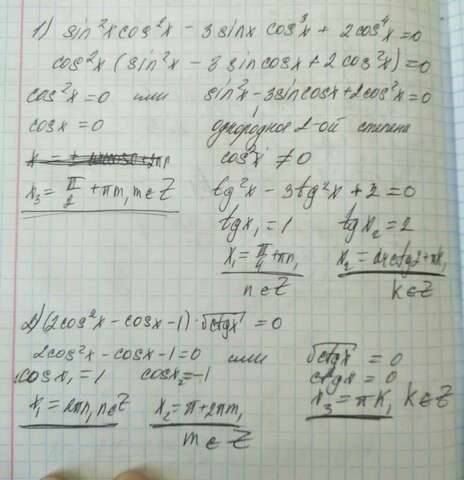 1) sin²x cos²x - 3 sinx cos³x + 2cos⁴x = 0
cos²x (sin²x - 3 sin cosx + 2 cos²x) = 0
cos²x = 0 или sin²x - 3sin cosx + 2cos²x = 0
cosx = 0 однородное 2-ой степени
cos²x ≠ 0
x₃ = π/2 + πm, m ∈ Z
tg²x - 3tg²x + 2 = 0
tgx₁ = 1 tgx₂ = 2
x₁ = π/4 + πn, x₂ = arctg2 + πk,
n ∈ Z k ∈ Z
2) (2cos²x - cosx - 1) · √ctgx = 0
2cos²x - cosx - 1 = 0 или √ctgx = 0
cosx₁ = 1 cosx₂ = -1 ctgx = 0
x₁ = 2πn, n ∈ Z x₂ = π + 2πm, x₃ = πk, k ∈ Z
m ∈ Z